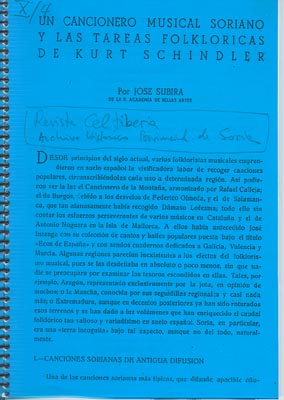 X/4
UN CANCIONERO MUSICAL SORIANO
Y LAS TAREAS FOLKLORICAS
DE KURT SCHINDLER
Por JOSE SUBIRA
DE LA R. ACADEMIA DE BELLAS ARTES
Revista Celtiberia
Archivo Histórico Provincial de Soria
DESDE principios del siglo actual, varios folkloristas musicales empren-
dieron en suelo español la vivificadora labor de recoger canciones
populares, circunscribiéndolas cada uno a determinada región. Así pudie-
ron ver la luz el Cancionero de la Montaña, armonizado por Rafael Calleja;
el de Burgos, debido a los desvelos de Federico Olmeda, y el de Salaman-
ca, que tan afanosamente había recogido Dámaso Ledesma; todo ello sin
contar los esfuerzos perseverantes de varios músicos en Cataluña y el de
Antonio Noguera en la Isla de Mallorca. A ellos había antecedido José
Inzenga con su colección de cantos y bailes populares puesta bajo el título
«Ecos de España» y con sendos cuadernos dedicados a Galicia, Valencia y
Murcia. Algunas regiones parecían inexistentes a los efectos del folkloris-
mo musical, pues se las desdeñaba en absoluto o poco menos, sin que na-
die se preocupara por examinar los tesoros escondidos en ellas. Tales, por
ejemplo, Aragón, representado exclusivamente por la jota, en opinión de
muchos; o la Mancha, conocida por sus seguidillas regionales y casi nada
más; o Extremadura, aunque en decenios posteriores ya han sido roturados
esos terrenos y se han dado a luz volúmenes que han enriquecido el caudal
folklórico tan valioso y variadísimo en suelo español. Soria, en particular,
era una «terra incognita» bajo tal aspecto, aunque no del todo, natural-
mente.
I.—CANCIONES SORIANAS DE ANTIGUA DIFUSION
Una de las canciones sorianas más típicas, que difunde apacible año-